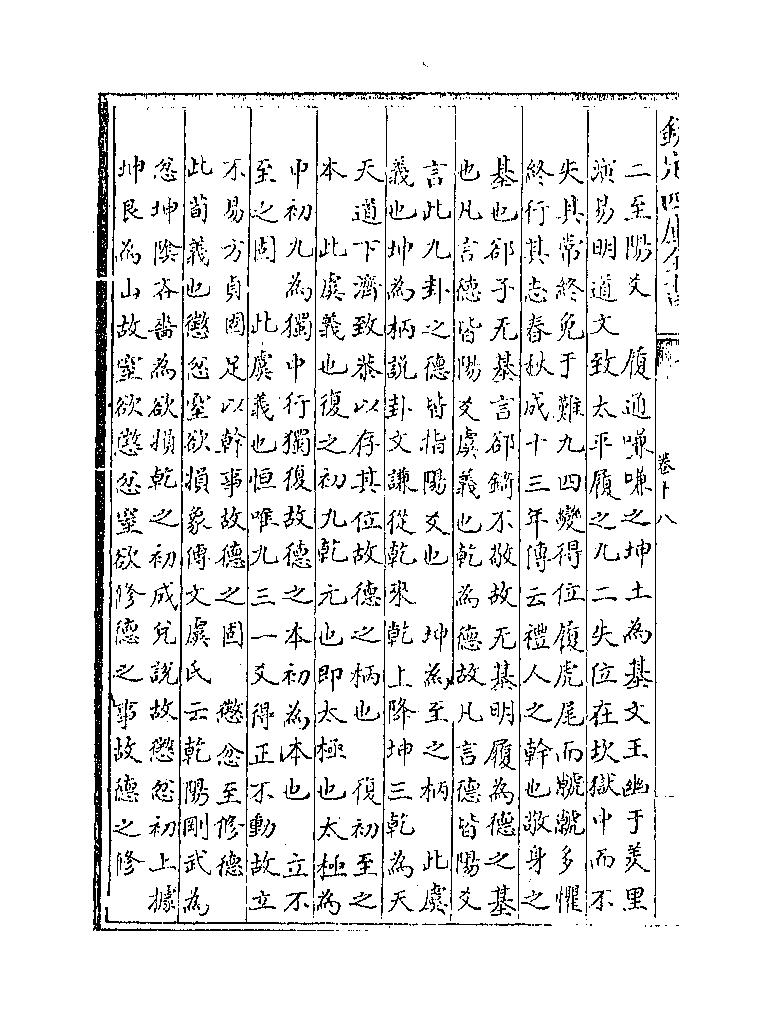 欽定四庫全書
卷十八
二至陽爻　履通嗛嗛之坤土為基文王幽于羑里
演易明道文致太平履之九二失位在坎獄中而不
失其常終免于難九四變得位履虎尾而虩虩多懼
終行其志春秋成十三年傳云禮人之幹也敬身之
基也郤子无基言郤錡不敬故无基明履為德之基
也凡言德皆陽爻虞義也乾為德故凡言德皆陽爻
言此九卦之德皆指陽爻也　坤為至之柄　此虞
義也坤為柄說卦文謙從乾來乾上降坤三乾為天
天道下濟致恭以存其位故德之柄也　復初至之
本　此虞義也復之初九乾元也即太極也太極為
中初九為獨中行獨復故德之本初為本也　立不
至之固　此虞義也恒唯九三一爻得正不動故立
不易方貞固足以幹事故德之固　懲忿至修德
此荀義也懲忿窒欲損象傳文虞氏云乾陽剛武為
忿坤陰吝嗇為欲損乾之初成兌說故懲忿初上據
坤艮為山故窒欲懲忿窒欲修德之事故德之修